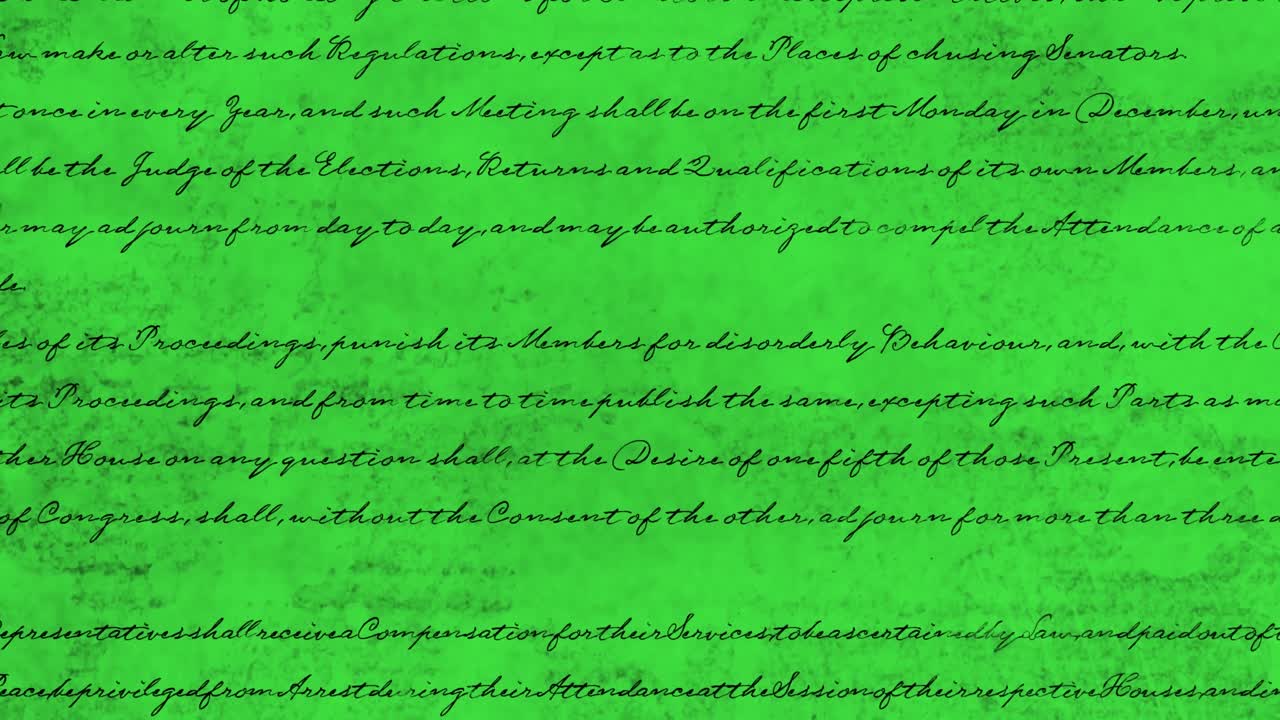 make or alter such Regulations, except as to the Places of chusing Senators.
once in every Year, and such Meeting shall be on the first Monday in December, un
ll be the Judge of the Elections, Returns and Qualifications of its own Members, an
r may adjourn from day to day, and may be authorized to compel the Attendance of a
le.
les of its Proceedings, punish its Members for disorderly Behaviour, and, with the C
its Proceedings, and from time to time publish the same, excepting such Parts as ma
ther House on any question shall, at the Desire of one fifth of those Present, be ente
of Congress, shall, without the Consent of the other, adjourn for more than three d
epresentatives shall receive a Compensation for their Services, to be ascertained by Law, and paid out of t
Peace, be privileged from Arrest during their Attendance at the Session of their respective Houses, and in